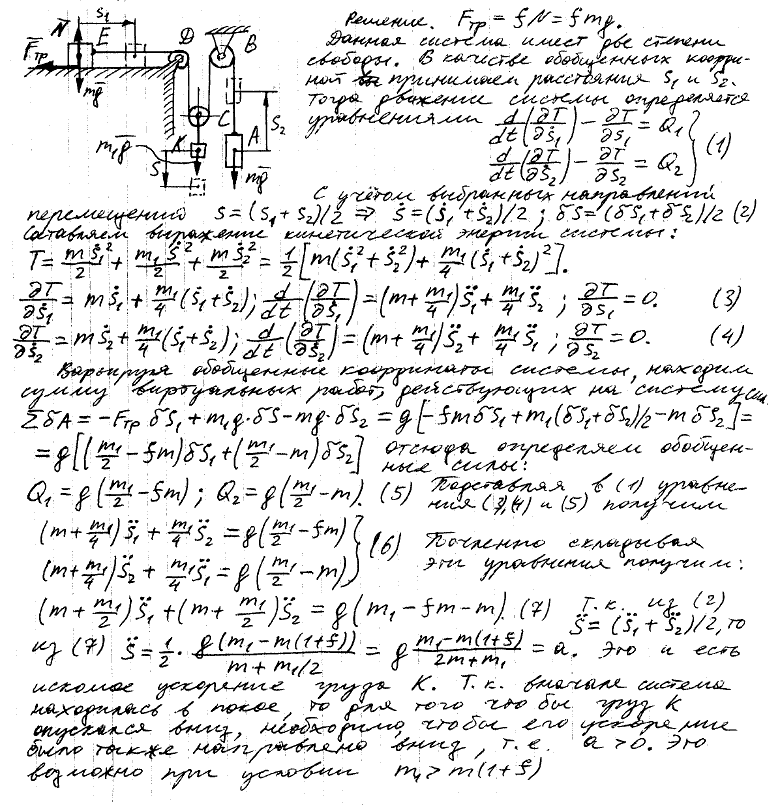 Решение. Fтр = fN = fmg.
Данная система имеет две степени
свободы. В качестве обобщенных коорди-
нат принимаем расстояния S₁ и S₂.
Тогда движении системы определяется
уравнениями d/dt(∂T/∂Ṡ₁) − ∂T/∂S₁ = Q₁
d/dt(∂T/∂Ṡ₂) − ∂T/∂S₂ = Q₂ } (1)
S₁
N E D B
Fтр
mg
C
S₂
K A
m₁g S
mg
С учётом выбранных направлений
перемещений S = (S₁+S₂)/2 ⇒ Ṡ = (Ṡ₁+Ṡ₂)/2 ; δS = (δS₁+δS₂)/2 (2)
Составляем выражении кинетической энергии системы:
T = mṠ₁²/2 + m₁Ṡ²/2 + mṠ₂²/2 = 1/2 [m(Ṡ₁²+Ṡ₂²) + m₁/4 (Ṡ₁+Ṡ₂)²].
∂T/∂Ṡ₁ = mṠ₁ + m₁/4 (Ṡ₁+Ṡ₂); d/dt(∂T/∂Ṡ₁) = (m+m₁/4)S̈₁ + m₁/4 S̈₂ ; ∂T/∂S₁ = 0. (3)
∂T/∂Ṡ₂ = mṠ₂ + m₁/4 (Ṡ₁+Ṡ₂); d/dt(∂T/∂Ṡ₂) = (m+m₁/4)S̈₂ + m₁/4 S̈₁ ; ∂T/∂S₂ = 0. (4)
Варьируя обобщенные координаты системы, находим
сумму виртуальных работ, действующих на систему сил.
ΣδA = −Fтр δS₁ + m₁g·δS − mg·δS₂ = g[−fmδS₁ + m₁(δS₁+δS₂)/2 − mδS₂] =
= g[(m₁/2 − fm)δS₁ + (m₁/2 − m)δS₂] Отсюда определяем обобщен-
ные силы:
Q₁ = g(m₁/2 − fm) ; Q₂ = g(m₁/2 − m). (5) Подставляя в (1) уравне-
ния (3,4) и (5) получим
(m+m₁/4)S̈₁ + m₁/4 S̈₂ = g(m₁/2 − fm)
(m+m₁/4)S̈₂ + m₁/4 S̈₁ = g(m₁/2 − m) } (6) Почленно складывая
эти уравнения получим:
(m + m₁/2)S̈₁ + (m + m₁/2)S̈₂ = g(m₁ − fm − m). (7) Т.к. из (2)
S̈ = (S̈₁+S̈₂)/2, то
из (7) S̈ = 1/2 · g(m₁ − m(1+f))/(m + m₁/2) = g (m₁ − m(1+f))/(2m + m₁) = a. Это и есть
искомое ускорение груза К. Т.к. вначале система
находилась в покое, то для того что бы груз К
опускался вниз, необходимо, чтобы его ускорение
было также направлено вниз, т.е. a > 0. Это
возможно при условии m₁ > m(1+f)